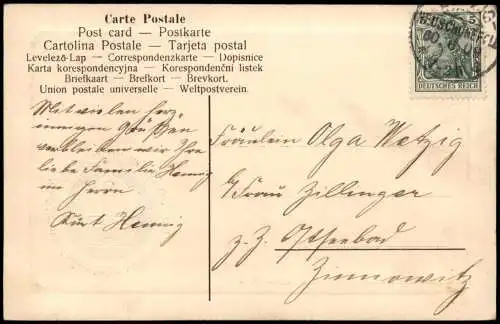 Carte Postale
Post card — Postkarte
Cartolina Postale — Tarjeta postal
Levelező-Lap — Correspondenzkarte — Dopisnice
Karta korespondencyjna — Korespondenční listek
Briefkaart — Brefkort — Brevkort.
Union postale universelle — Weltpostverein.
Mit vielen herz
innigen Grüßen
verbleiben wir Ihre
liebe Familie Hennig
im Herrn
Kurt Hennig
Fräulein Olga Wetzig
b/ Frau Zillinger
z. Z. Ostseebad
Zinnowitz
5
DEUTSCHES REICH